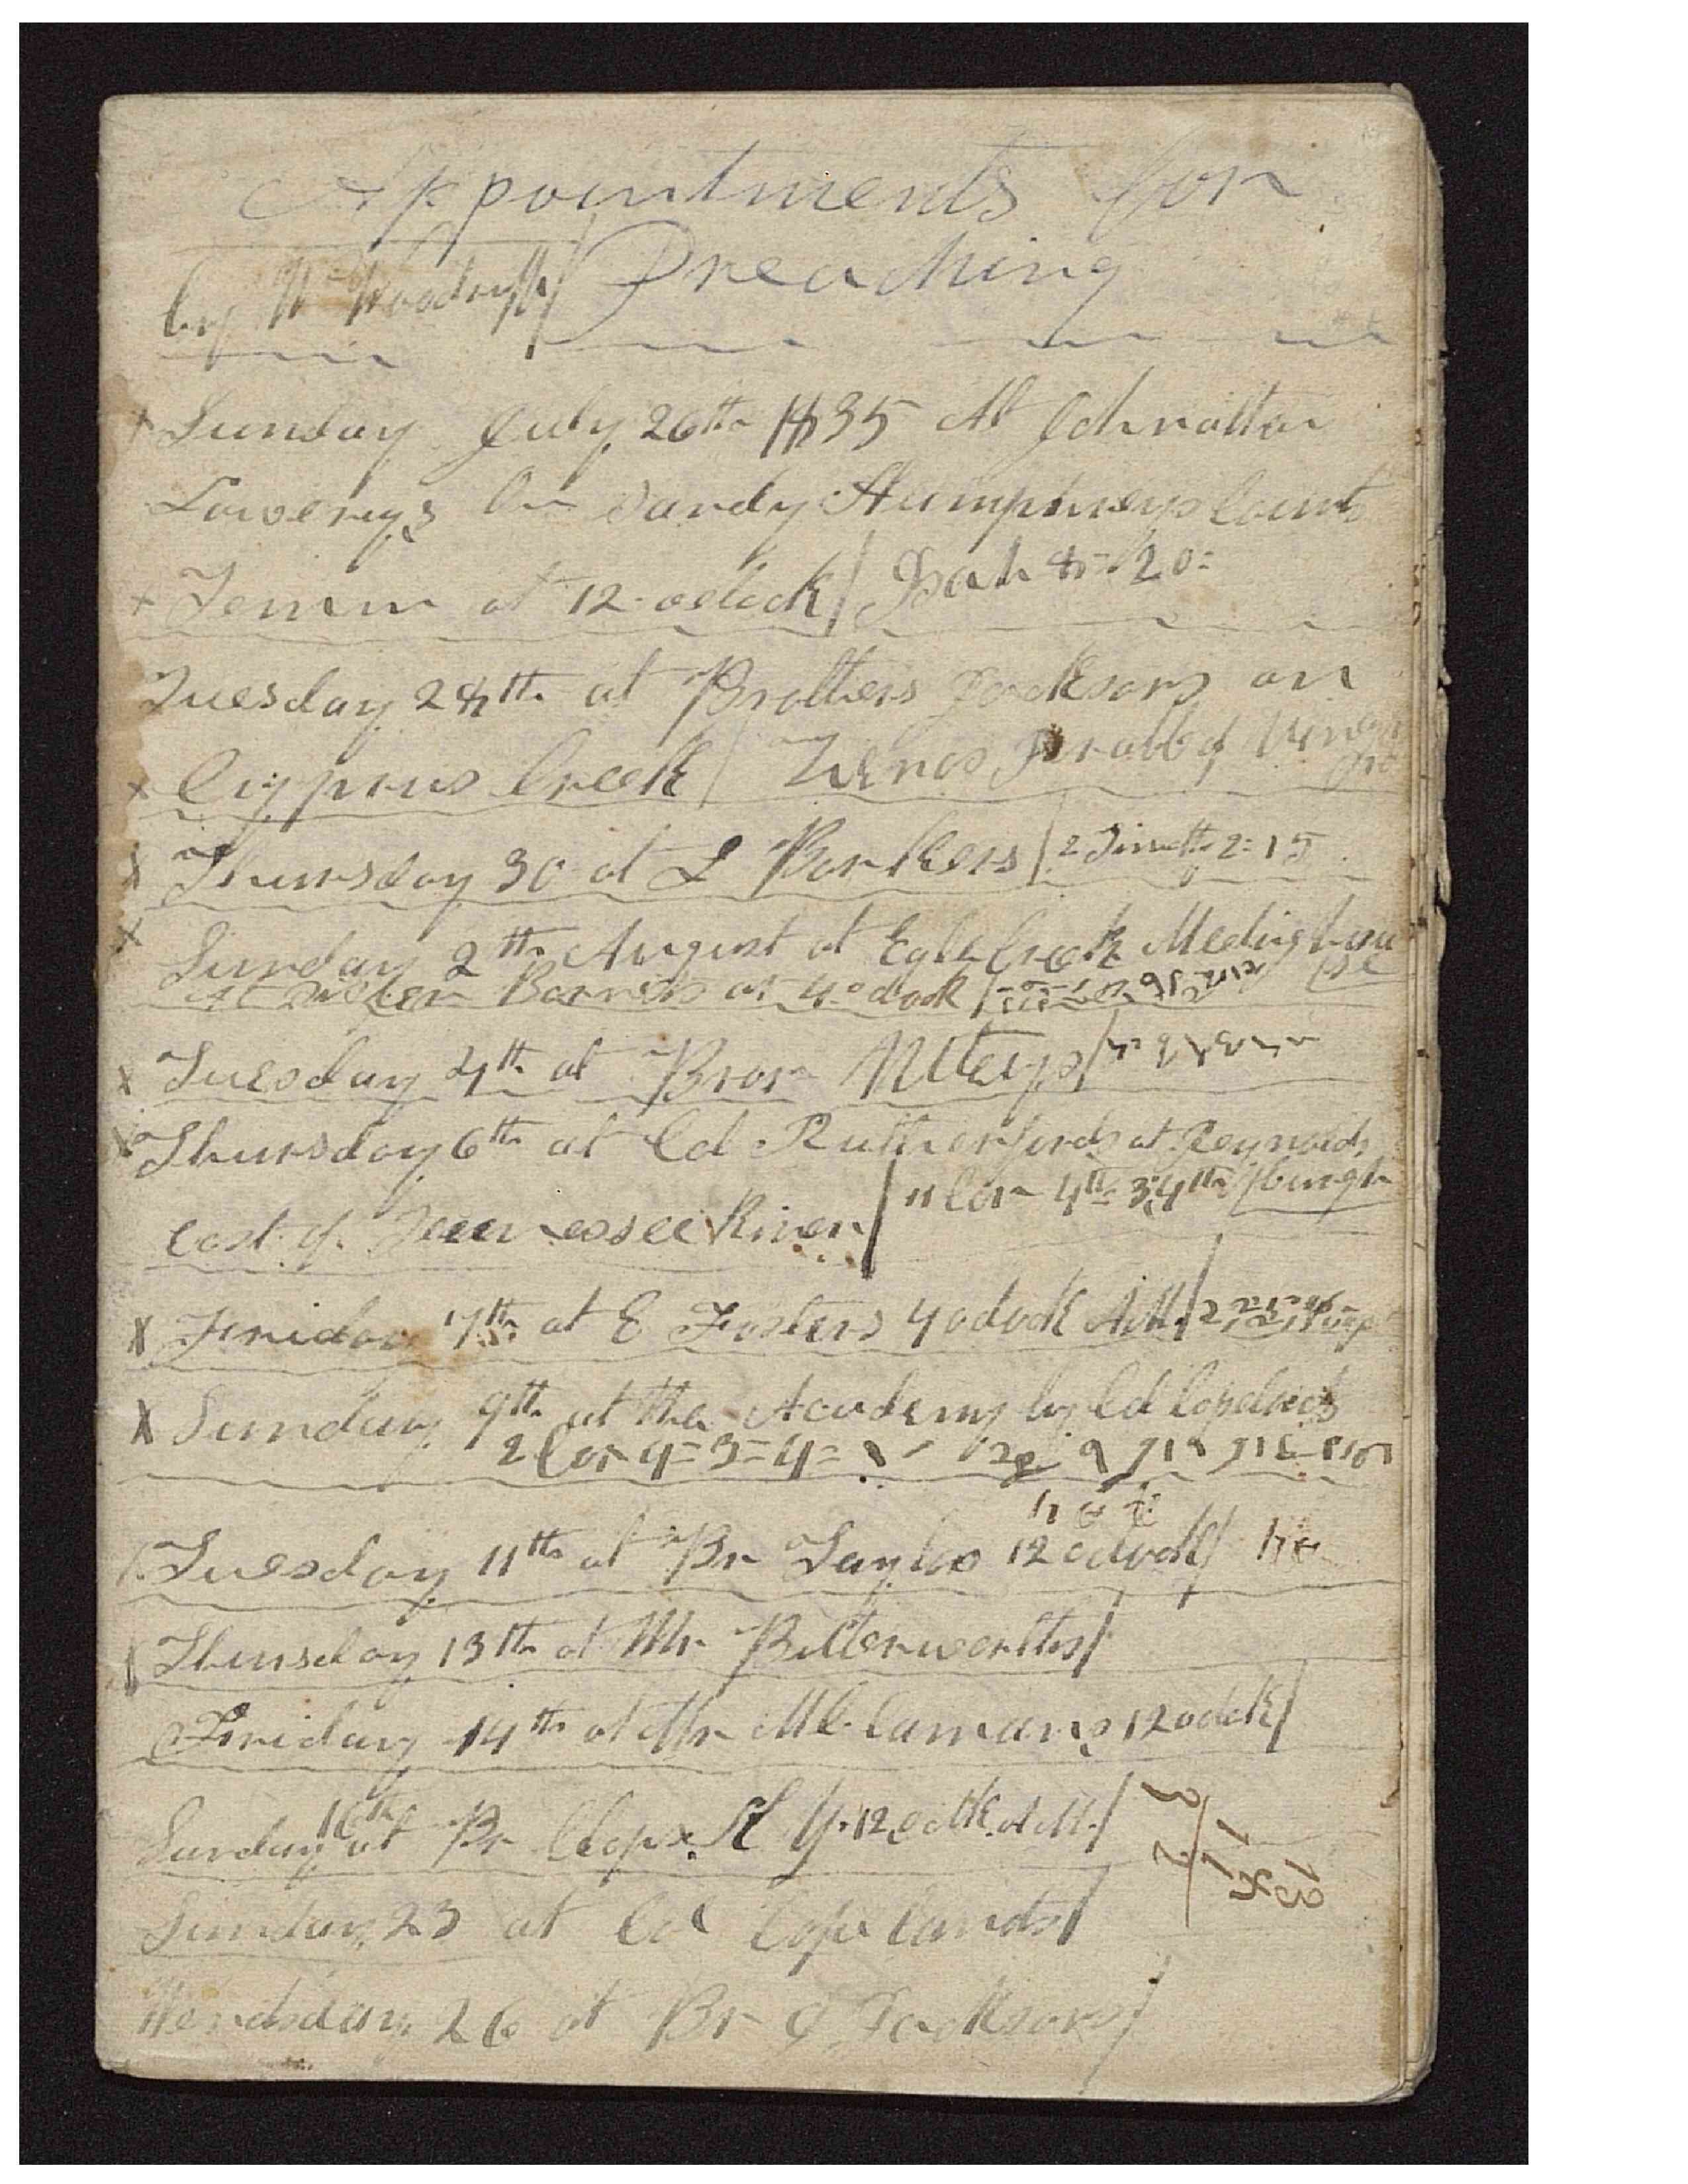 Appointments for
by W Woodruff / Preaching
Sunday July 26th 1835 At Johnathan
Lowerys in Sandy Humphreys Count
Tenn at 12 oclock / Isah 8=20=
Tuesday 28th at Brothers Jacksons on
Cyprus Creek /
Thursday 30 at L Barkers / 2 Timothy 2=15
Sunday 2th August at Egle Creek Meeting hou
se
At Sister Barnets at 4 oclock /
Tuesday 4th at Bror Utleys /
Thursday 6th at Col Rutherfords at Reynolds
burgh
East of Tennessee River / 11 Cor 4th 3;4th
Friday 7th at E Fosters 4 oclock AM /
Sunday 9th at the Academy by Col Copelands
2 Cor 4=3=4=
Tuesday 11th at Br Taylors 12 oclock /
Thursday 13th at Mr Bitterworths /
Friday 14th at Mr Camans 12 oclok /
Sunday 16th at Br Claps 12 oclk AM /
Sunday 23 at Col Copelands /
Wendsday 26 at Br Jacksons /